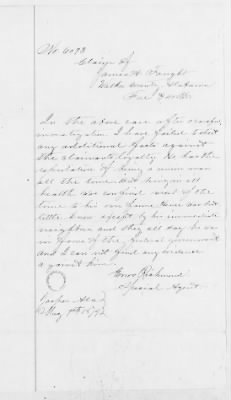 No. 6093
Claim of
James H. Vaught
Walker County Alabama
For $
In the above case after careful
investigation I have failed to elicit
any additional facts against
the claimants loyalty. He has the
reputation of being a union man
all the time but being in ill
health was confined most of the
time to his own home Hence was but
little known except by his immediate
neighbors and they all say he was
in favor of the federal government
and I can not find any evidence
against him.
Enos Richmond
Special Agent
Jasper Ala
Aug 18